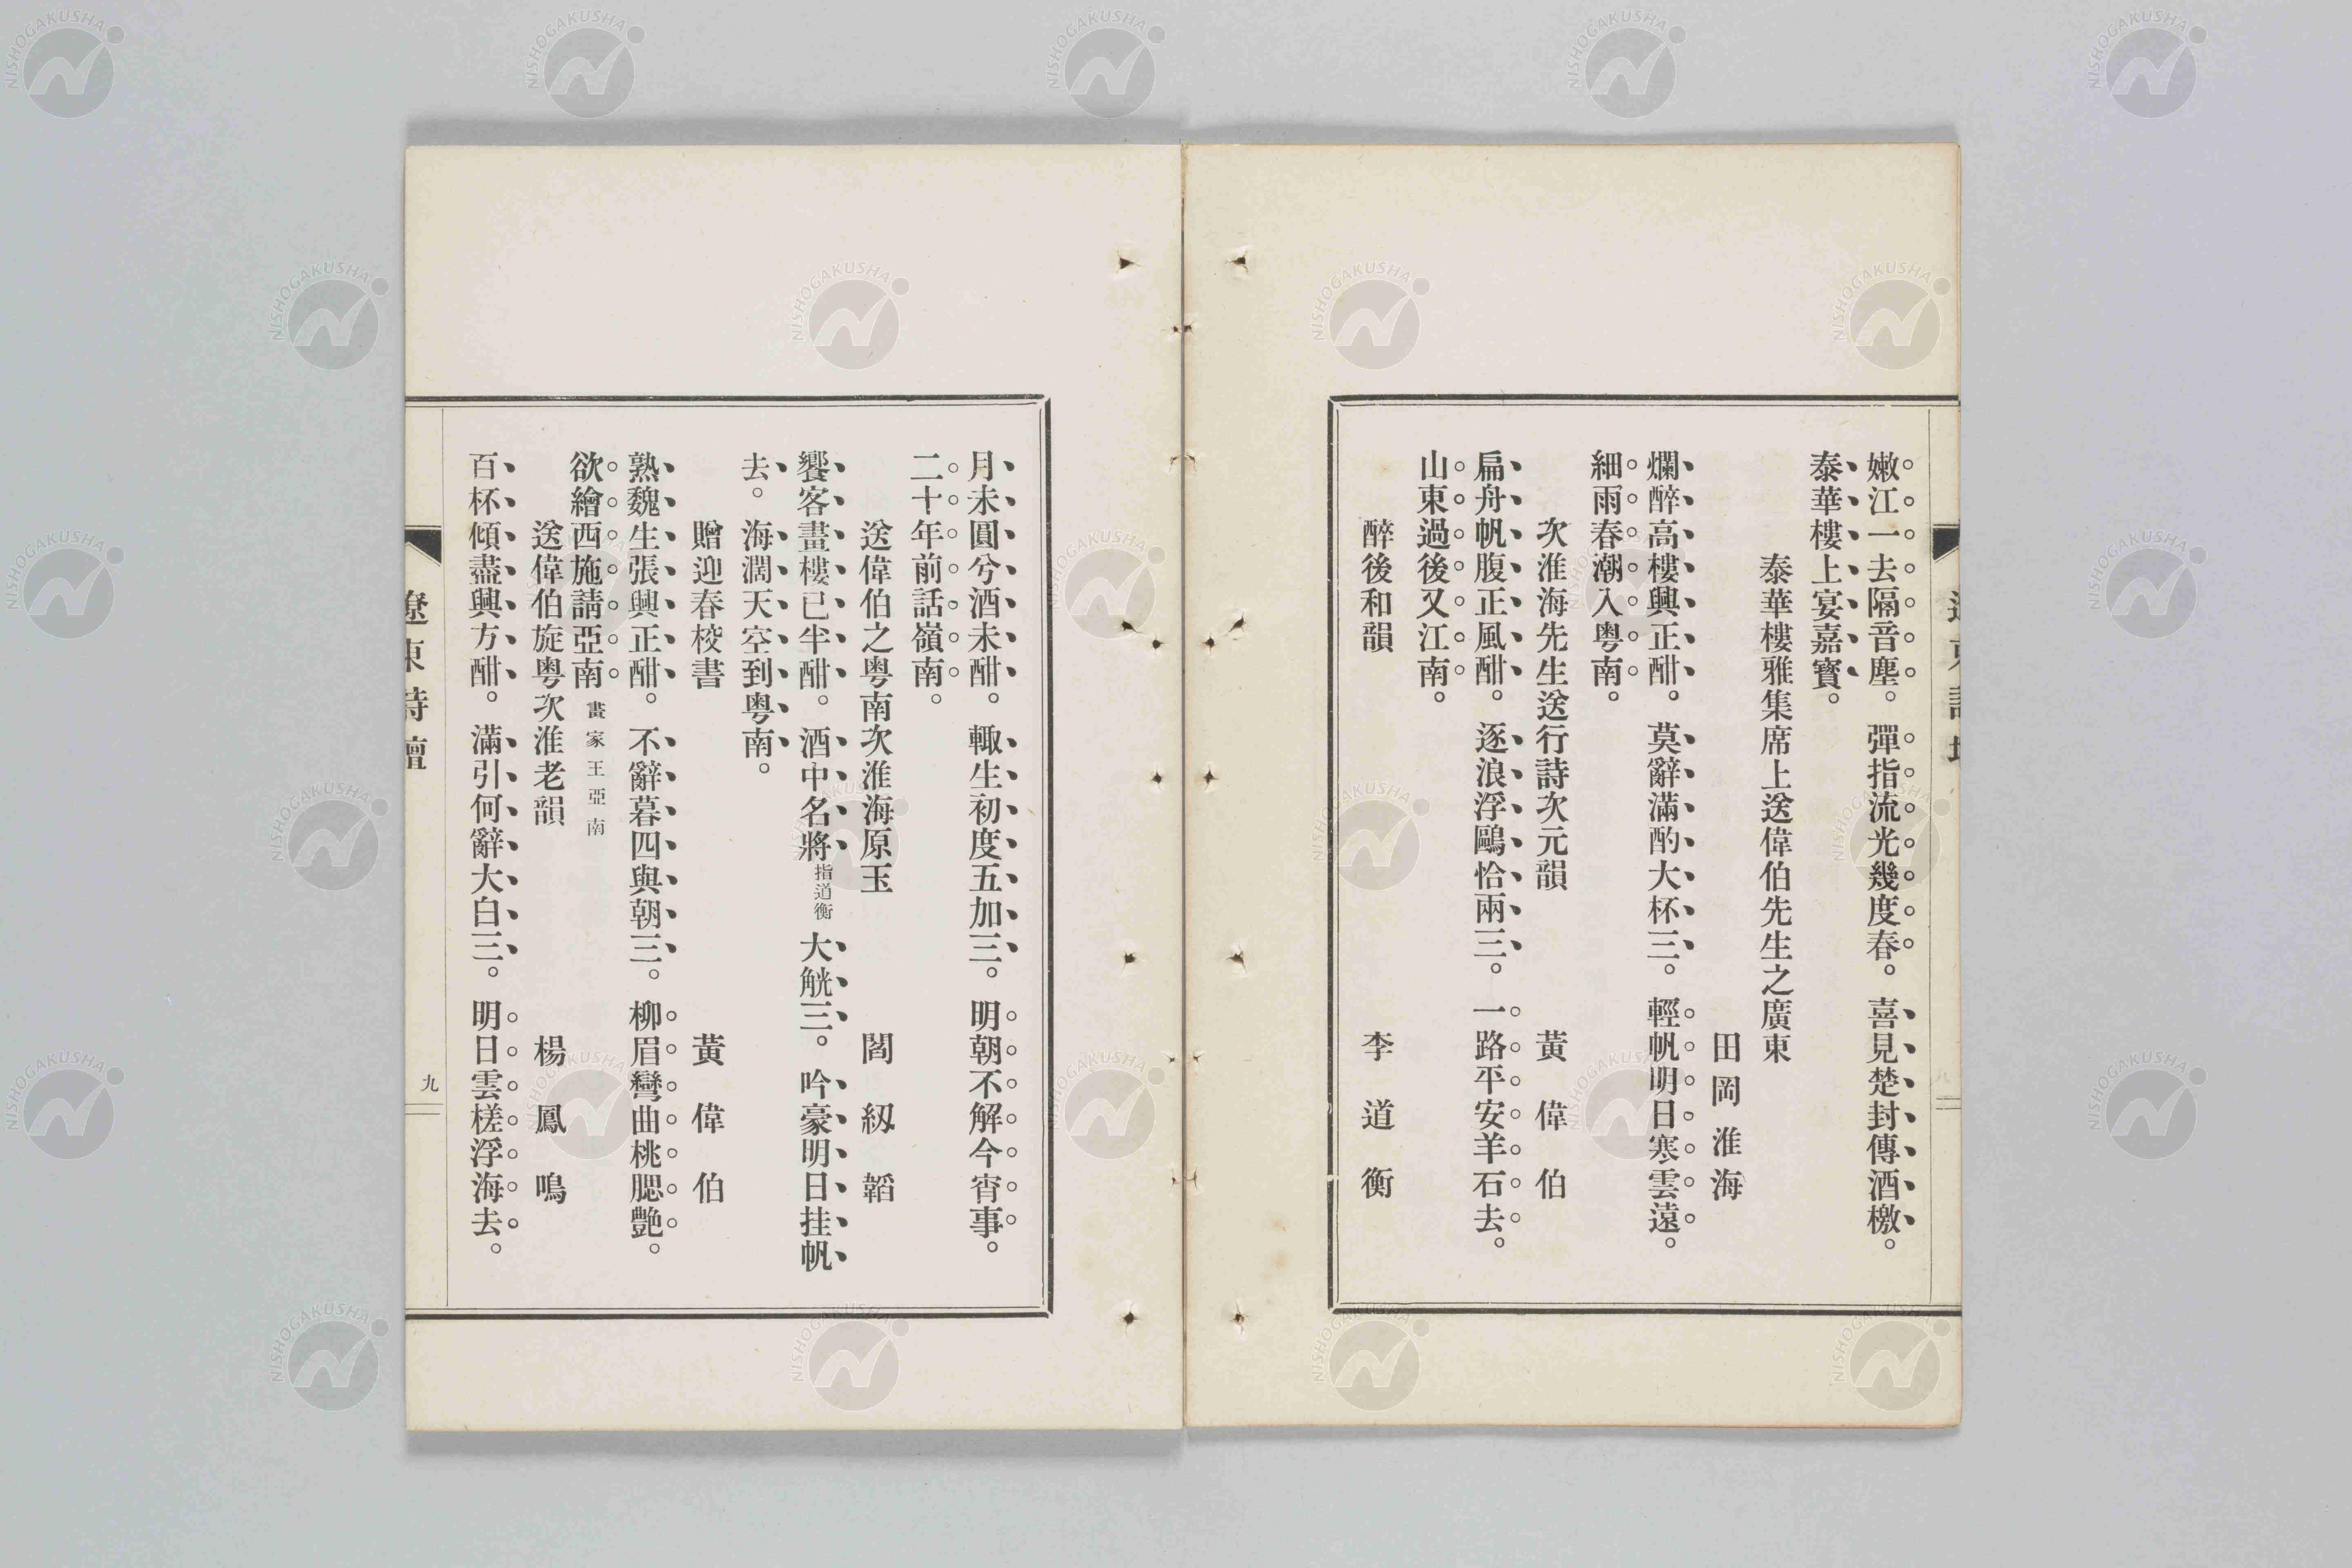 嫩江一去隔音塵。彈指流光幾度春。喜見楚封傳酒檄。
泰華樓上宴嘉賓。
泰華樓雅集席上送偉伯先生之廣東
田岡淮海
爛醉高樓興正酣。莫辭滿酌大杯三。輕帆明日寒雲遠。
細雨春潮入粤南。
次淮海先生送行詩次元韻 黃偉伯
扁舟帆腹正風酣。逐浪浮鷗恰兩三。一路平安羊石去。
山東過後又江南。
醉後和韻 李道衡
月未圓兮酒未酣。輙生初度五加三。明朝不解今宵事。
二十年前話嶺南。
送偉伯之粤南次淮海原玉 閻紉韜
饗客畫樓已半酣。酒中名將指道衡大觥三。吟豪明日挂帆
去。海濶天空到粤南。
贈迎春校書 黃偉伯
熟魏生張興正酣。不辭暮四與朝三。柳眉彎曲桃腮艶。
欲繪西施請亞南。畫家王亞南
送偉伯旋粤次淮老韻 楊鳳鳴
百杯傾盡興方酣。滿引何辭大白三。明日雲槎浮海去。
遼東詩壇
九
NISHOGAKUSHA